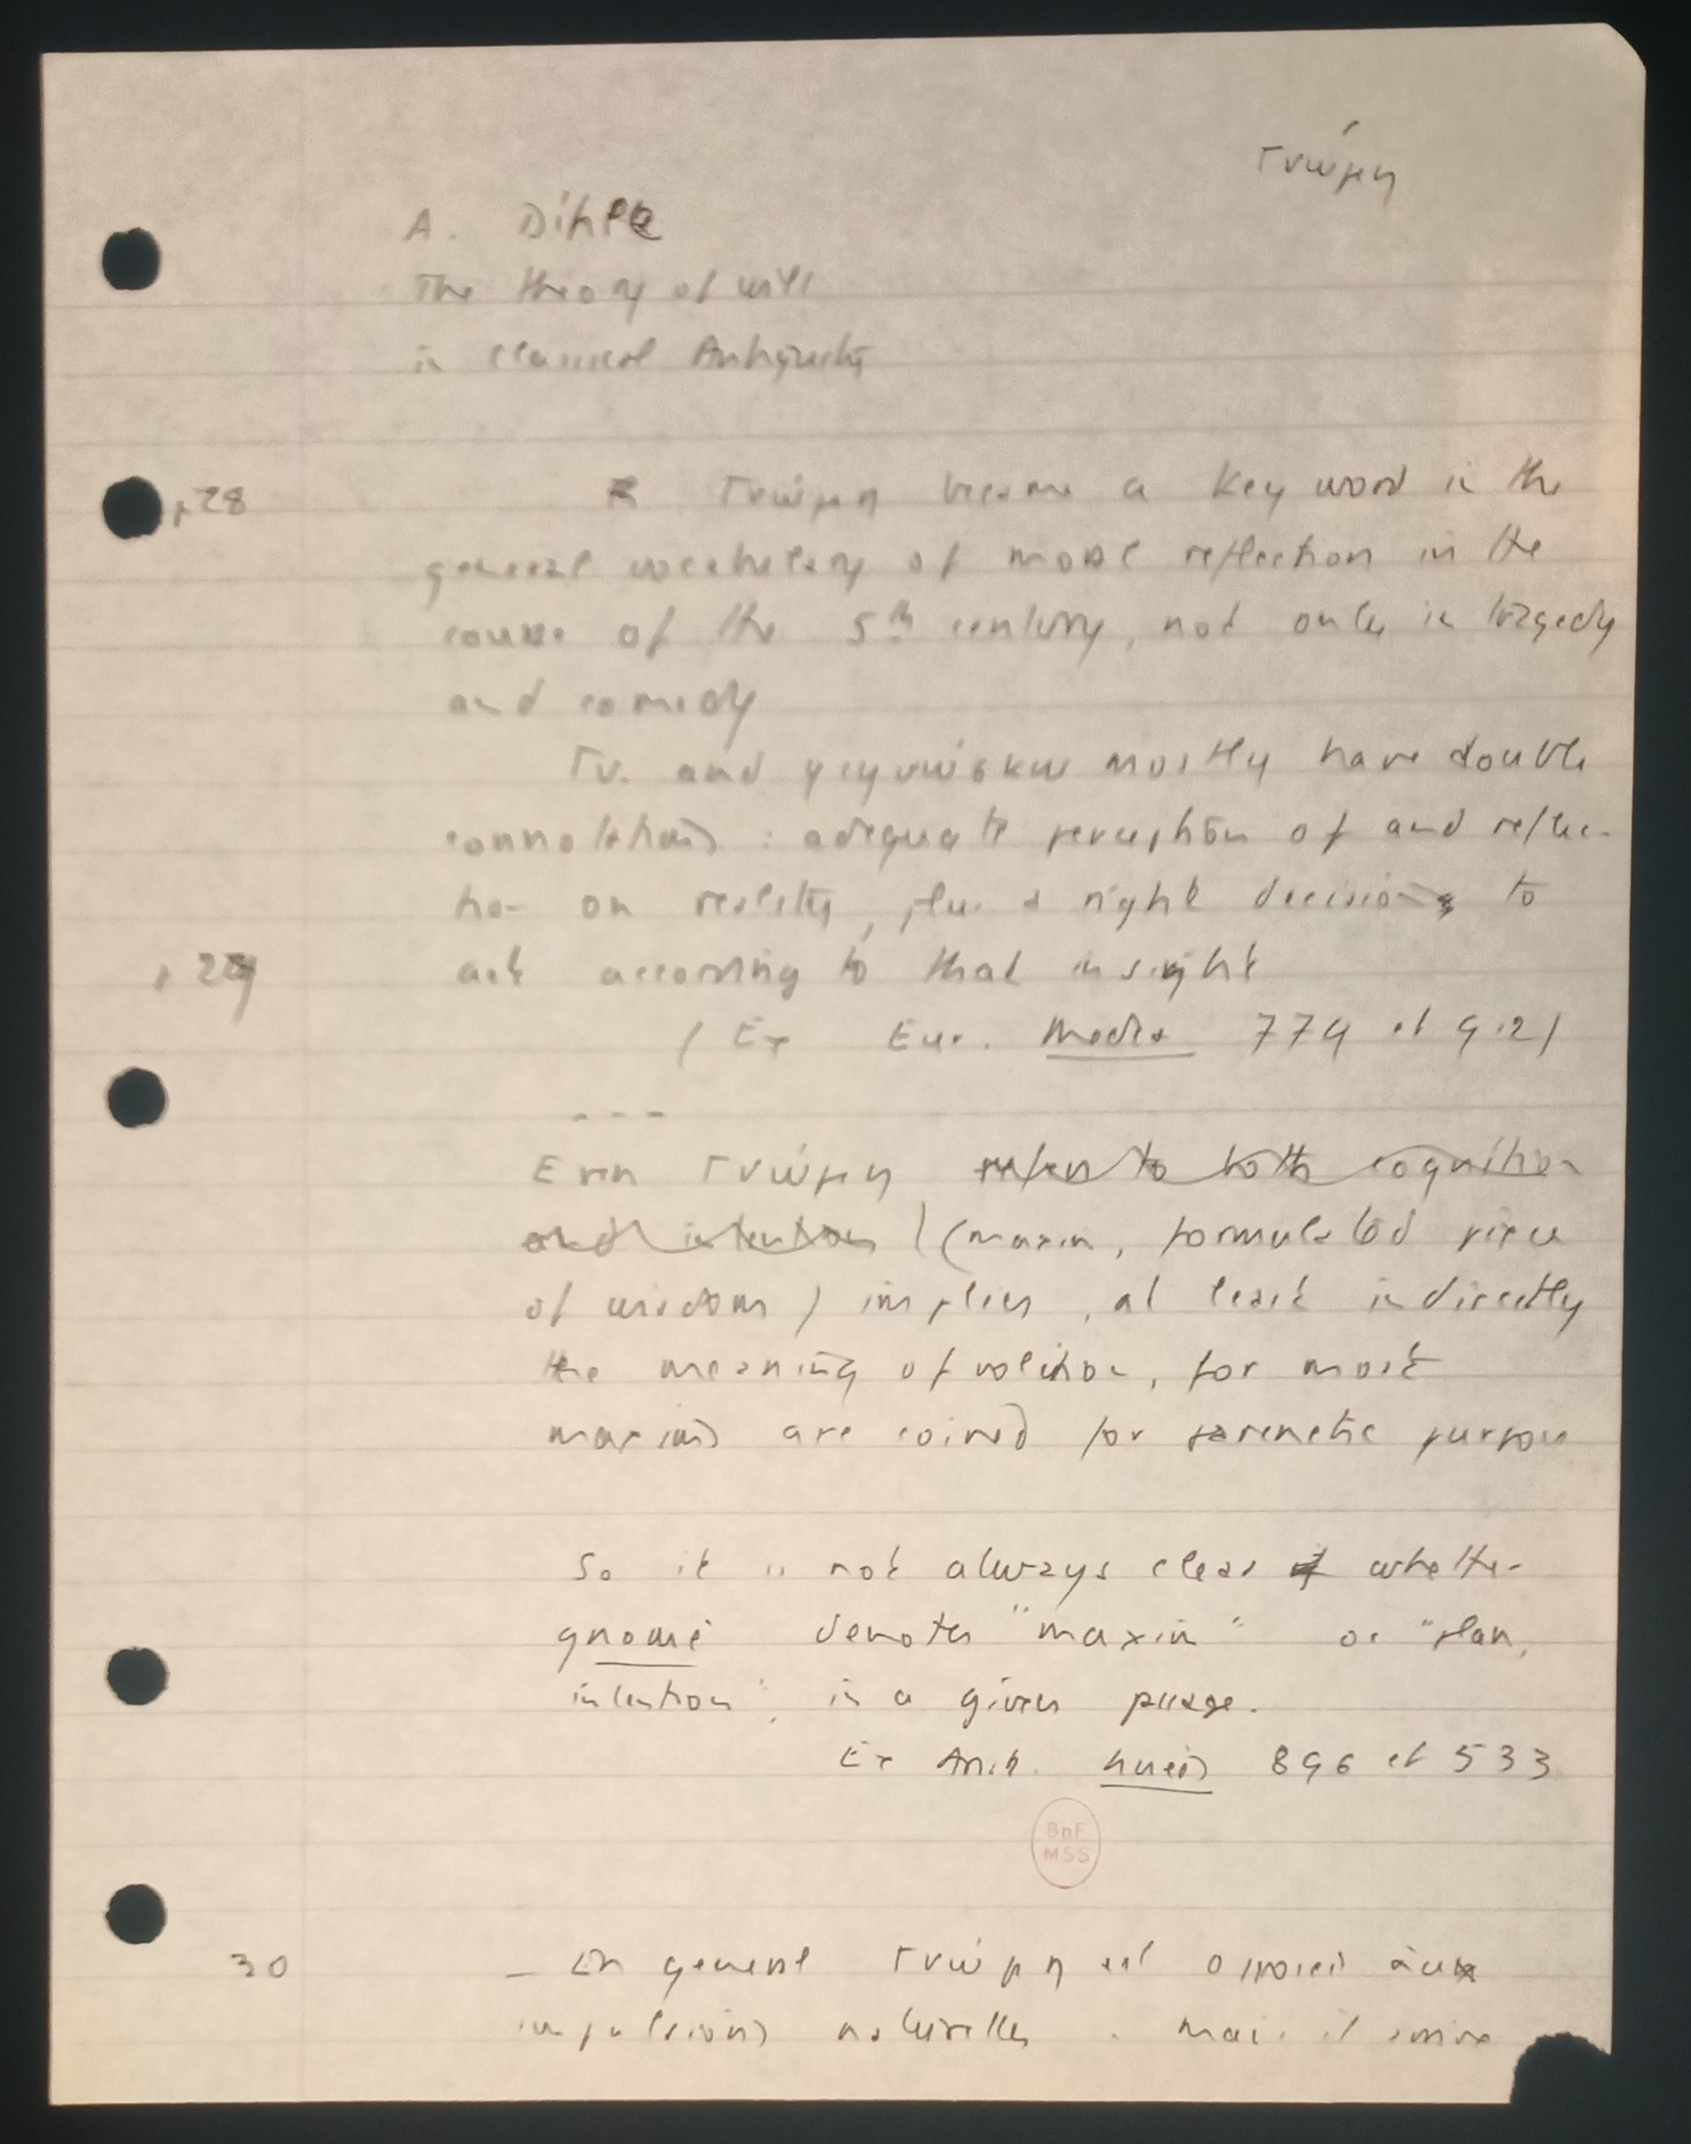 Γνώμη
A. Dihle
The theory of will
in Classical Antiquity
p 28 Γνώμη became a key word in the
general vocabulary of moral reflection in the
course of the 5th century, not only in tragedy
and comedy
Γν. and γιγνώσκω mostly have double
connotations : adequate perception of and reflec-
tion on reality, plus a right decision to
p 29 act according to that insight
( Ex Eur. Medea 779 et 912)
- - -
Even Γνώμη refers to both cognition
and intention (maxim, formulated piece
of wisdom) implies, at least indirectly
the meaning of volition, for most
maxims are coined for parenetic purpose
So it is not always clear if whether
gnomè denotes "maxim" or "plan,
intention", in a given passage.
Ex Arist. nuées 896 et 533
BnF
MSS
30 - En general Γνώμη est opposée aux
impulsions naturelles. mais il arrive